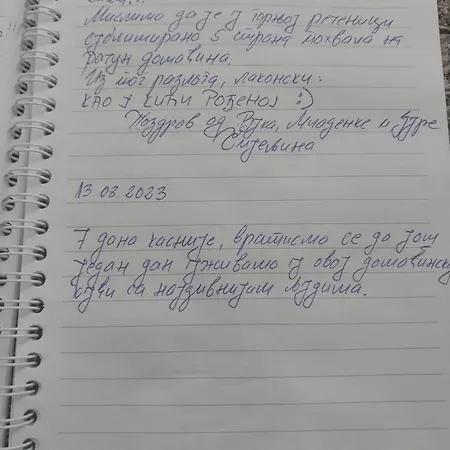 Мислимо да је у горњој реченици
сублимирано 5 страна похвала на
рачун домаћина.
Из тог разлога, лаконски:
КАО У КУЋИ РОЂЕНОЈ :)
Поздрав од Вука, Младенке и Ђурђе
Сијељина
13.08.2023
7 дана касније, вратисмо се да још
један дан уживамо у овој домаћинској
кући са најдивнијим људима.